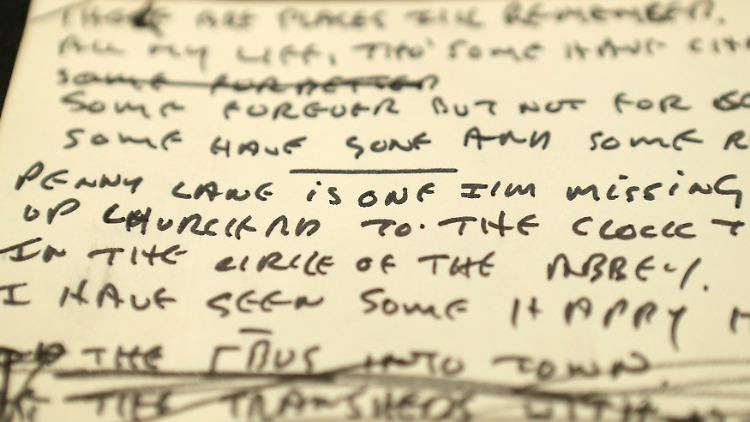 THERE ARE PLACES I'LL REMEMBER.
ALL MY LIFE, THO' SOME HAVE CH
SOME FOR BETTER
SOME FOREVER BUT NOT FOR
SOME HAVE GONE AND SOME R
PENNY LANE IS ONE I'M MISSING
UP CHURCH RD TO. THE CLOCK T
IN THE CIRCLE OF THE ABBEY.
I HAVE SEEN SOME HAPPY H
THE BUS INTO TOWN
THE TRAMSHEDS WITH